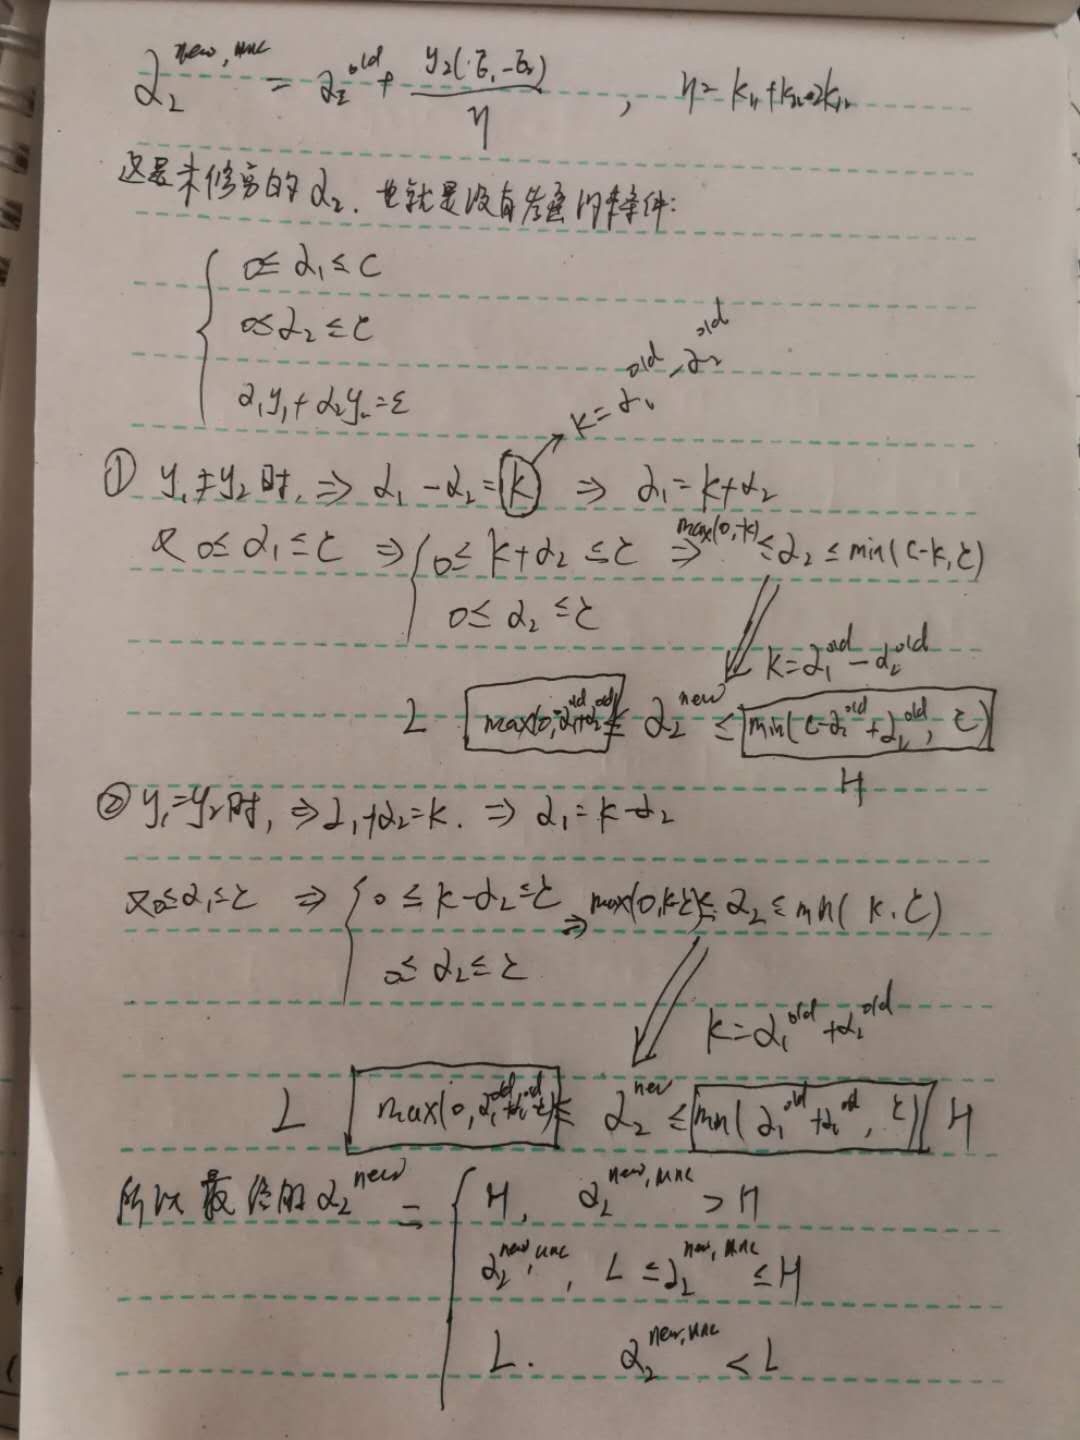 α₂^{new,unc} = α₂^{old} + y₂(E₁-E₂)/η , η=k₁₁+k₂₂-2k₁₂
这是未修剪的α₂, 也就是没有考虑约束条件:
0≤α₁≤C
0≤α₂≤C
α₁y₁+α₂y₂=ε
k=α₁^{old}-α₂^{old}
① y₁≠y₂时, ⇒ α₁-α₂=k ⇒ α₁=k+α₂
又 0≤α₁≤C ⇒ { 0≤k+α₂≤C ⇒ max(0,-k)≤α₂≤min(C-k,C)
0≤α₂≤C
k=α₁^{old}-α₂^{old}
L max(0,-α₁^{old}+α₂^{old})≤ α₂^{new} ≤ min(C-α₁^{old}+α₂^{old}, C)
H
② y₁=y₂时, ⇒ α₁+α₂=k. ⇒ α₁=k-α₂
又0≤α₁≤C ⇒ { 0≤k-α₂≤C ⇒ max(0,k-C)≤α₂≤min(k,C)
0≤α₂≤C
k=α₁^{old}+α₂^{old}
L max(0,α₁^{old}+α₂^{old}-C)≤ α₂^{new} ≤ min(α₁^{old}+α₂^{old}, C) H
所以最终的α₂^{new} = { H, α₂^{new,unc} > H
α₂^{new,unc}, L≤α₂^{new,unc}≤H
L. α₂^{new,unc} < L